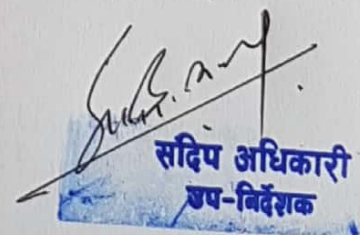 संदिप अधिकारी
उप-निर्देशक